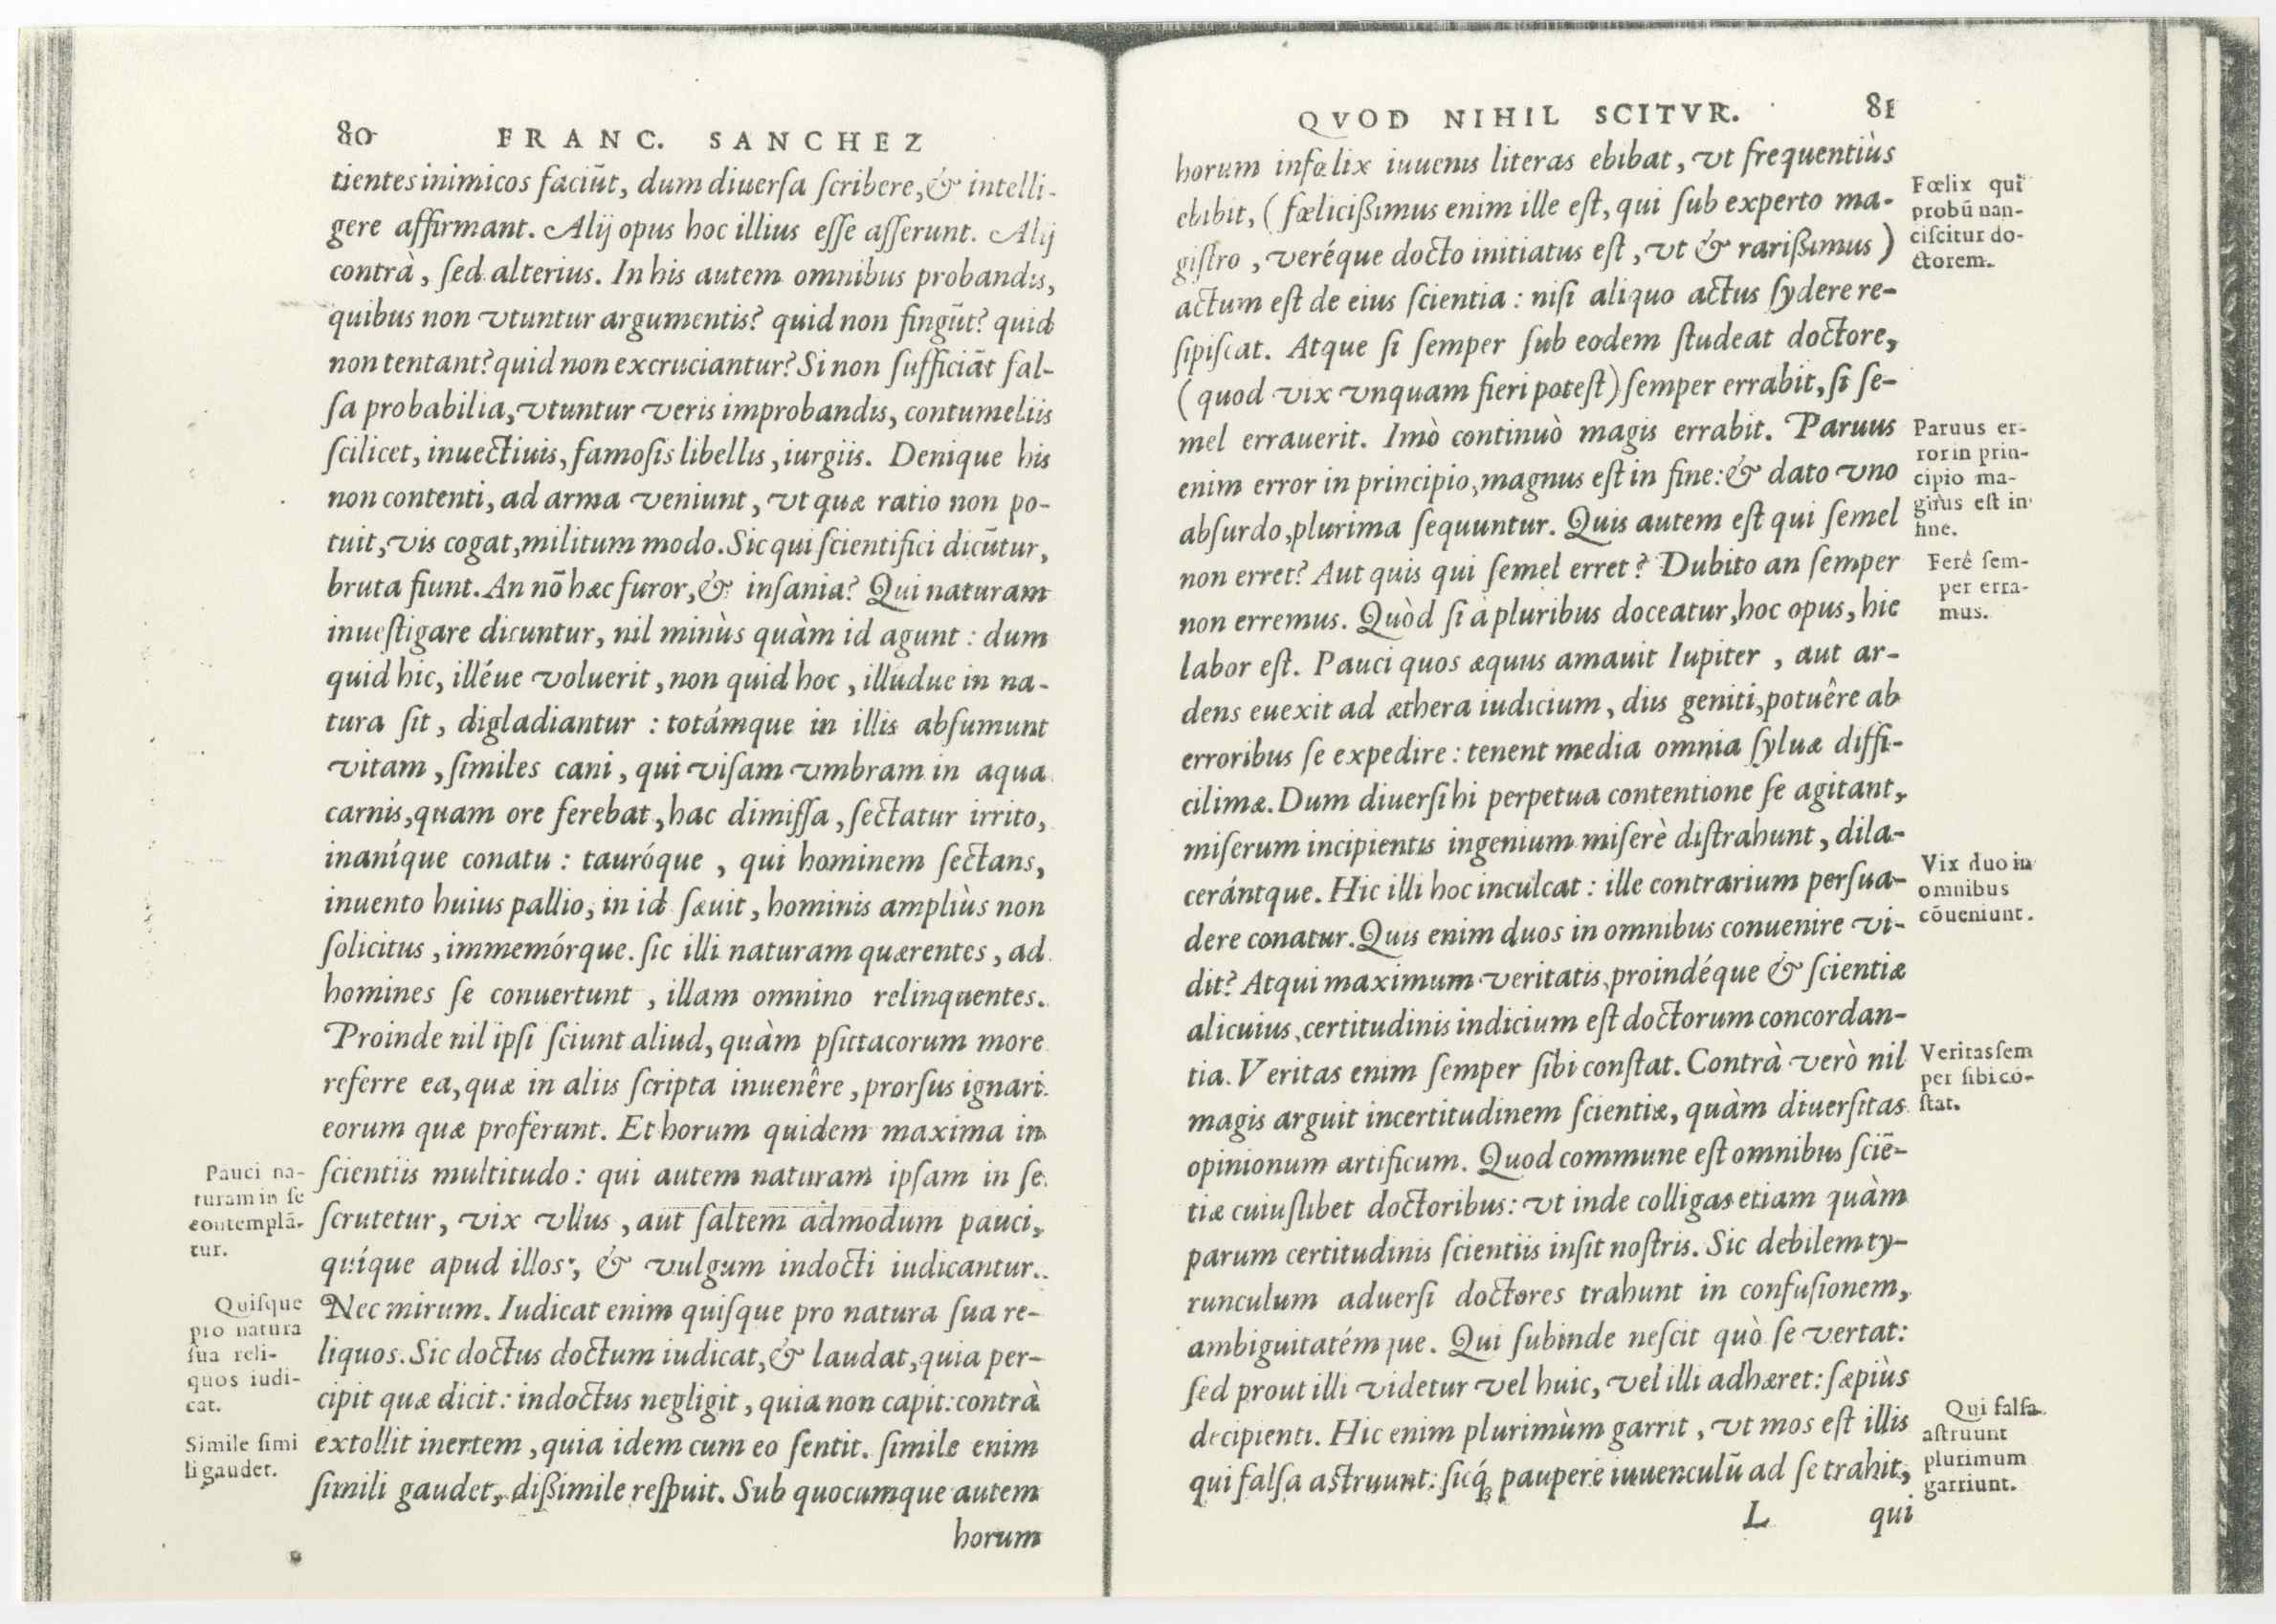 80 FRANC. SANCHEZ
tientes inimicos faciũt, dum diuerſa ſcribere, & intelli-
gere affirmant. Alij opus hoc illius eſſe aſſerunt. Alij
contrà, ſed alterius. In his autem omnibus probandis,
quibus non vtuntur argumentis? quid non fingũt? quid
non tentant? quid non excruciantur? Si non ſufficiãt fal-
ſa probabilia, vtuntur veris improbandis, contumeliis
ſcilicet, inuectiuis, famoſis libellis, iurgiis. Denique his
non contenti, ad arma veniunt, vt quæ ratio non po-
tuit, vis cogat, militum modo. Sic qui ſcientifici dicũtur,
bruta fiunt. An nõ hæc furor, & inſania? Qui naturam
inueſtigare dicuntur, nil minùs quàm id agunt : dum
quid hic, illéue voluerit, non quid hoc, illudue in na-
tura ſit, digladiantur : totámque in illis abſumunt
vitam, ſimiles cani, qui viſam vmbram in aqua
carnis, quam ore ferebat, hac dimiſſa, ſectatur irrito,
inaníque conatu : tauróque, qui hominem ſectans,
inuento huius pallio, in id ſæuit, hominis ampliùs non
ſolicitus, immemórque. ſic illi naturam quærentes, ad
homines ſe conuertunt, illam omnino relinquentes.
Proinde nil ipſi ſciunt aliud, quàm pſittacorum more
referre ea, quæ in aliis ſcripta inuenêre, prorſus ignari
eorum quæ proferunt. Et horum quidem maxima in
ſcientiis multitudo : qui autem naturam ipſam in ſe
ſcrutetur, vix vllus, aut ſaltem admodum pauci,
quíque apud illos, & vulgum indocti iudicantur.
Nec mirum. Iudicat enim quiſque pro natura ſua re-
liquos. Sic doctus doctum iudicat, & laudat, quia per-
cipit quæ dicit : indoctus negligit, quia non capit : contrà
extollit inertem, quia idem cum eo ſentit. ſimile enim
ſimili gaudet, dißimile reſpuit. Sub quocumque autem
horum
Pauci na-
turam in ſe
contemplã-
tur.
Quiſque
pro natura
ſua reli-
quos iudi-
cat.
Simile ſimi
li gaudet.
QVOD NIHIL SCITVR. 81
horum infœlix iuuenis literas ebibat, vt frequentiùs
ebibit, ( fœlicißimus enim ille eſt, qui ſub experto ma-
giſtro, veréque docto initiatus eſt, vt & rarißimus )
actum eſt de eius ſcientia : niſi aliquo actus ſydere re-
ſipiſcat. Atque ſi ſemper ſub eodem ſtudeat doctore,
( quod vix vnquam fieri poteſt ) ſemper errabit, ſi ſe-
mel errauerit. Imò continuò magis errabit. Paruus
enim error in principio, magnus eſt in fine : & dato vno
abſurdo, plurima ſequuntur. Quis autem eſt qui ſemel
non erret? Aut quis qui ſemel erret? Dubito an ſemper
non erremus. Quòd ſi à pluribus doceatur, hoc opus, hic
labor eſt. Pauci quos æquus amauit Iupiter, aut ar-
dens euexit ad æthera iudicium, diis geniti, potuêre ab
erroribus ſe expedire : tenent media omnia ſyluæ diffi-
cilimæ. Dum diuerſi hi perpetua contentione ſe agitant,
miſerum incipientis ingenium miſerè diſtrahunt, dila-
cerántque. Hic illi hoc inculcat : ille contrarium perſua-
dere conatur. Quis enim duos in omnibus conuenire vi-
dit? Atqui maximum veritatis, proindéque & ſcientiæ
alicuius, certitudinis indicium eſt doctorum concordan-
tia. Veritas enim ſemper ſibi conſtat. Contrà verò nil
magis arguit incertitudinem ſcientiæ, quàm diuerſitas
opinionum artificum. Quod commune eſt omnibus ſciẽ-
tiæ cuiuſlibet doctoribus : vt inde colligas etiam quàm
parum certitudinis ſcientiis inſit noſtris. Sic debilem ty-
runculum aduerſi doctores trahunt in confuſionem,
ambiguitatémque. Qui ſubinde neſcit quò ſe vertat :
ſed prout illi videtur vel huic, vel illi adhæret : ſæpiùs
decipienti. Hic enim plurimùm garrit, vt mos eſt illis
qui falſa aſtruunt : ſicq́; pauperẽ iuuenculũ ad ſe trahit,
L qui
Fœlix qui
probũ nan-
ciſcitur do-
ctorem.
Paruus er-
ror in prin-
cipio ma-
gnus eſt in
fine.
Ferè ſem-
per erra-
mus.
Vix duo in
omnibus
cõueniunt.
Veritas ſem
per ſibi cõ-
ſtat.
Qui falſa
aſtruunt
plurimum
garriunt.